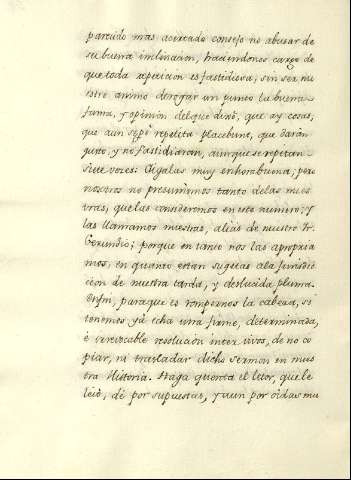 parecido mas acertado consejo no abusar de
su buena inclinacion, haciendonos cargo de
que toda repeticion es fastidiosa; sin ser nu
estro animo derogar un punto la buena
fama, y opinion del que dixo, que ay cosas,
que aun sepè repetita placebunt, que darán
gusto, y no fastidiaran, aunque se repetan
siete vozes: Oigalas muy enhorabuena; pero
nosotros no presumimos tanto de las nues
tras, que las consideremos en este numero; Y
las llamamos nuestras, aliàs de nuestro Fr.
Gerundio; porque en tanto nos las apropria
mos, en quanto estan sugetas a la jurisdic
cion de nuestra tarda, y deslucida pluma.
Enfin, para que es rompernos la cabeza, si
tenemos yà echa una firme, determinada,
è irrevocable resolucion inter vivos, de no co
piar, ni trasladar dicho Sermon en nues
tra Historia. Haga quenta el letor, que le
leiò, dè por supuestas, y aun por oidas mu